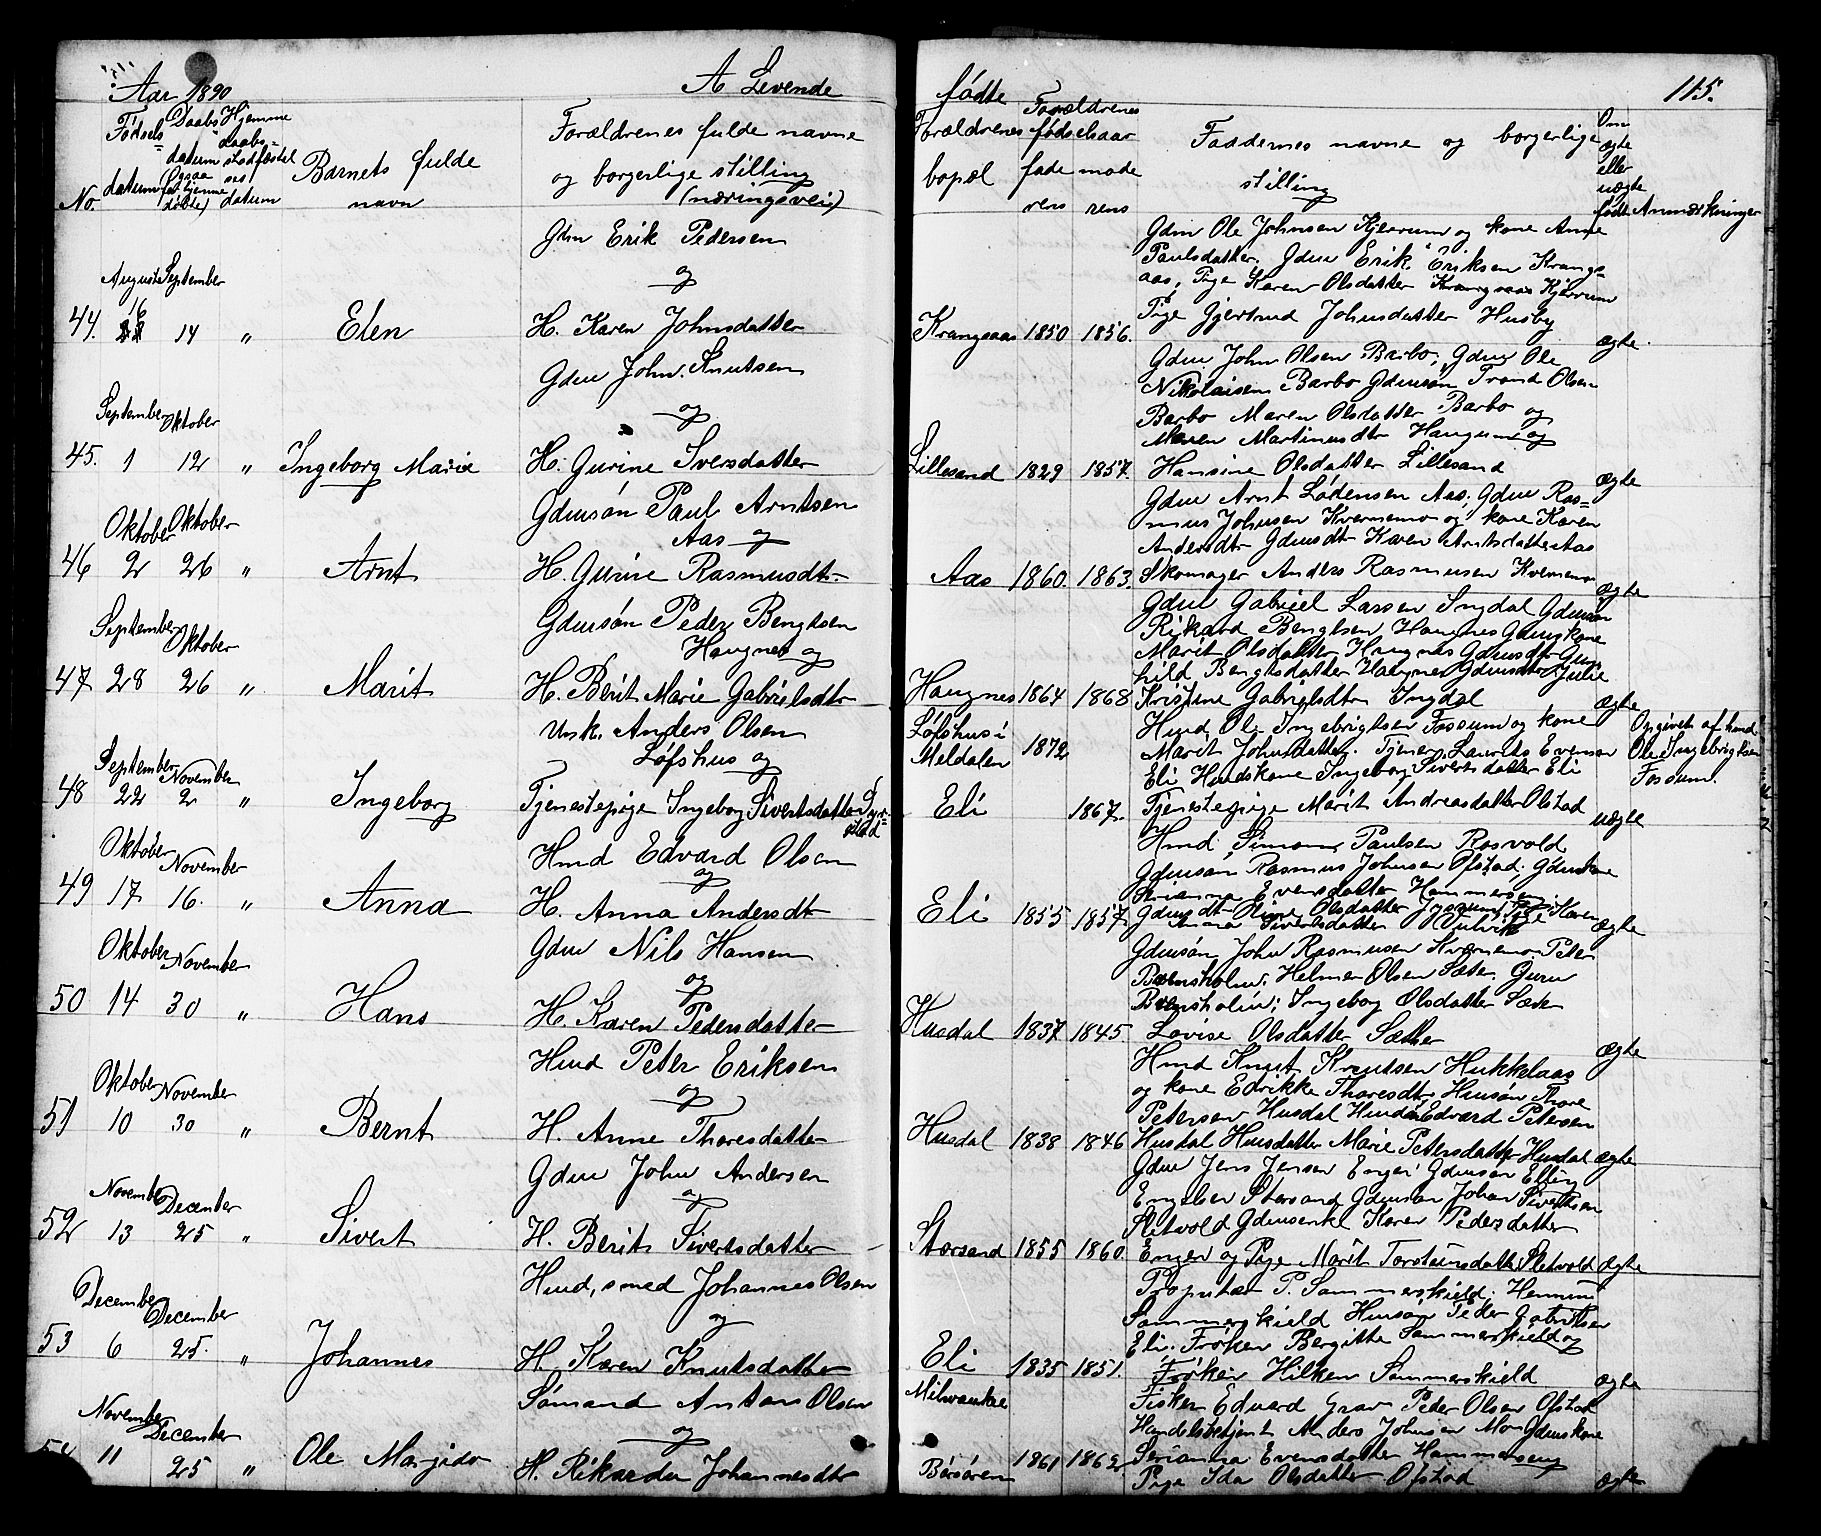 Aar 1890
A Levende
No.
Fødsels datum
Daabs datum (ogsaa for hjemme døbte)
Hjemme daabs stadfæstelses datum
Barnets fulde navn
Forældrenes fulde navne
og borgerlige stilling
(næringsvei)
44. August 16 September 14 " Elen
Gdm Erik Pedersen
og
H. Karen Johnsdatter
45. September 1 Oktober 12 " Ingeborg Marie
Gdm John Knutsen
og
H. Gurine Iversdatter
46 Oktober 2 Oktober 26 " Arnt
Gdmsøn Paul Arntsen
Aas og
H. Gurine Rasmusdt
47 September 28 Oktober 26 " Marit
Gdmsøn Peder Bengtsen
Haugnes og
H. Berit Marie Gabrielsdt
48 September 22 November 2 " Ingeborg
Unk. Anders Olsen
Løfshus og
Tjenestepige Ingeborg Sivertsdatter
49 Oktober 17 November 16. " Anna
Hmd Edvard Olsen
og
H. Anna Andersdt
50 Oktober 14 November 30 " Hans
Gdm Nils Hansen
og
H. Karen Pedersdatter
51 Oktober 10 November 30 " Bernt
Hmd Peter Eriksen
og
H. Anne Thoresdatter
52 November 13 December 25 " Sivert
Gdm John Andersen
og
H. Berit Sivertsdatter
53 December 6 December 25. " Johannes
Hmd, smed Johannes Olsen
og
H. Karen Knutsdatter
54 November 11 December 25 " Ole Margido
Sømand Antons Olsen
og
H. Rikarda Johannesdt
fødte
115.
Forældrenes bopæl
Forældrenes fødselsaar
faderens moderens
Faddernes navne og borgerlige
stilling
Om ægte eller uægte født
Anmærkninger
Gdm Ole Johnsen Kjerrum og kone Anne
Paulsdatter, Gdm Erik Eriksen Krangs-
aas, Pige Karen Olsdatter Kjerrum
Pige Gjertrud Johnsdatter Husby
Krangsaas 1850 1856. ægte.
Gdm John Olsen Barbo, Gdm Ole
Nikolaisen Barbo Gdmsøn Trond Olsen
Barbo Maren Olsdatter Barbo og
Maren Martinusdt Haugum og
Lillesand 1829 1857. Hansine Olsdatter Lillesand ægte
Gdm Arnt Lødensen Aas, Gdm Ras-
mus Johnsen Kvernemo og kone Karen
Andersdt Gdmsdt Karen Arntsdatter Aas
Aas 1860. 1863. Skomager Anders Rasmusen Kvernemo ægte
Gdm Gabriel Larsen Ingdal Gdmsøn
Rikard Bengtsen Haugnes Gdmskone
Marit Olsdatter Haugnes Gdmsdt Gun-
hild Bengtsdatter Haugnes Gdmsdtr Julie
Haugnes 1864 1868 Kristine Gabrielsdt Ingdal ægte
Hmd Ole Ingebrigtsen Fossum og kone
Løfshus i Meldalen 1872 Marit Johnsdatter. Tjener Laurits Evensen
Eli Hmdskone Ingeborg Sivertsdatter Eli
Eli 1867. Tjenestepige Marit Andreasdatter Ofstad uægte
Opgivet af hmd
Ole Ingebrigtsen
Fossum.
Hmd Simon Paulsen Rosvold
Gdmsøn Rasmus Johnsen Ofstad, Gdmkone
Serianna Evensdatter Hammersen
Eli 1855 1857. Gdmsdt Oline Olsdatter Pige Karen
Anna Sivertsdatter ægte
Gdmsøn John Rasmusen Kvernemo. Peter
Bærnsholm; Helmer Olsen Sæter. Guru
Bærnsholm; Ingeborg Olsdatter Sæter
Husdal 1837 1845. Lovise Olsdatter Sæther ægte
Hmd Knut Knutsen Hukkelaas
og kone Edrikke Thoresdt, Hmsøn Thore
Petersen Husdal Hmdsøn Edvard Petersen
Husdal 1838 1846 Husdal Hmsdatter Marie Petersdatter Husdal ægte
Gdm Jens Jensen Enger Gdmsøn Elling
Engelsen Storsand Gdmsøn Johan Sivertsen
Sletvold Gdmsenke Karen Pedersdatter
Storsand 1855 1860. Enger og Pige Marit Torsteinsdatter Sletvold ægte
Proprietær P. Sommerskield. Herman
Sommerskield Hmsøn Peder Gabrielsen
Eli. Frøken Bergitte Sommerskield og
Eli 1835 1851. Frøken Hilken Sommerskield ægte
Milwaukee
Fisker Edvard Grav Peder Olsen Ofstad
Handelsbetjent Anders Johnsen Mo Gdmskone
Børsøren 1861 1862 Serianna Evensdatter Hammerseng
Pige Ida Olsdatter Ofstad ægte